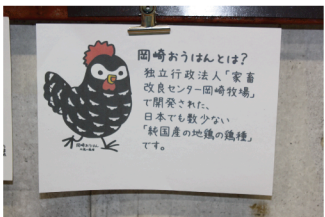 岡崎おうはんとは?
独立行政法人「家畜
改良センター岡崎牧場」
で開発された、
日本でも数少ない
「純国産の地鶏の鶏種」
です。
岡崎おうはん